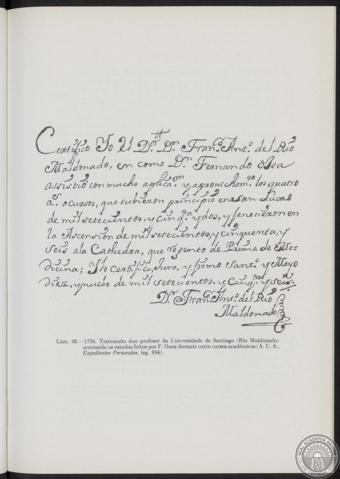 Certifico Yo el Dr. Dn. Franco. Anto. del Rio
Maldonado, en como Dn. Fernando Osea
assistió con mucho aplicaon. y aprovechamto. los quatro
as. o cursos, que tubieron principio en San Lucas
de mil setecientos, y cinqta. y dos, y fenecieron en
la Ascension de mil setecientos, y cinquenta, y
seis, a la Cathedra, que regento de Prima de Me-
dicina; Yo Certifico, Juro, y firmo Santo. y Mayo
diez, y nuebe de mil setecientos, y cinqta. y seis.
Dr. Franco. Anto. del Rio
Maldonado
Lám. 38.—1756. Testemuño dun profesor da Universidade de Santiago (Río Maldonado)
acretando os estudos feitos por F. Oxea durante catro cursos académicos (A. U. S.,
Expedientes Personales, leg. 956).